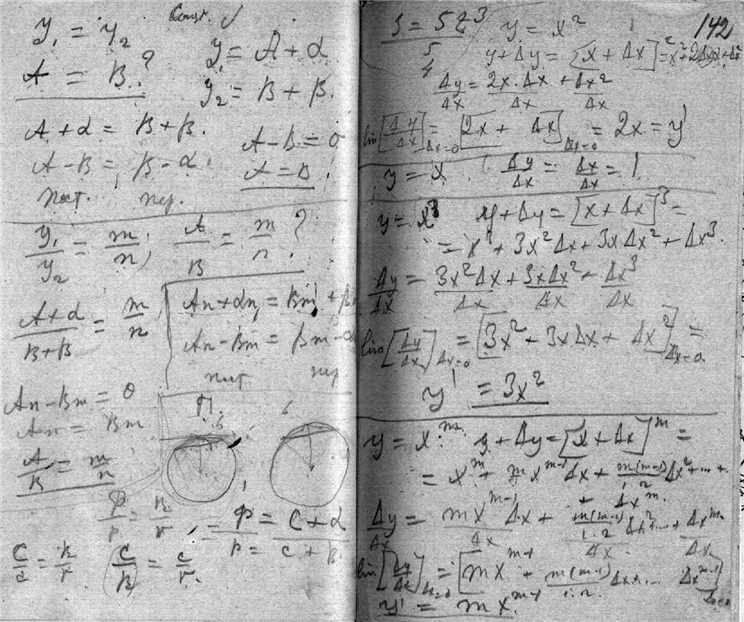 y₁ = y₂ Const. ✓
A = B ? y₁ = A + α
y₂ = B + β.
A + α = B + β. A − B = 0
A − B = β − α A = B
y₁/y₂ = m/n; A/B = m/n ?
(A + α)/(B + β) = m/n
An + αn = Bm + β
An − Bm = βm − α
An − Bm = 0
An = Bm
A/B = m/n
P/p = R/r = P/p = (C + α)/(c + β)
C/c = R/r C/R = c/r.
142
y = x²
y + Δy = [x + Δx]² = x² + 2Δx·x + Δx²
Δy/Δx = 2x·Δx/Δx + Δx²/Δx
lim [Δy/Δx]Δx=0 = [2x + Δx]Δx=0 = 2x = y'
y = x Δy/Δx = Δx/Δx = 1.
y = x³ y + Δy = [x + Δx]³ =
= x³ + 3x²Δx + 3xΔx² + Δx³.
Δy/Δx = 3x²Δx/Δx + 3xΔx²/Δx + Δx³/Δx
lim [Δy/Δx]Δx=0 = [3x² + 3xΔx + Δx²]Δx=0 =
y' = 3x²
y = x^m y + Δy = [x + Δx]^m =
= x^m + m x^(m−1) Δx + m(m−1)/1·2 Δx² + ... + Δx^m.
Δy/Δx = m x^(m−1) Δx/Δx + m(m−1)/1·2 Δx²/Δx + ... + Δx^m/Δx
lim [Δy/Δx]Δx=0 = [m x^(m−1) + m(m−1)/1·2 Δx + ... Δx^(m−1)]Δx=0
y' = m x^(m−1).